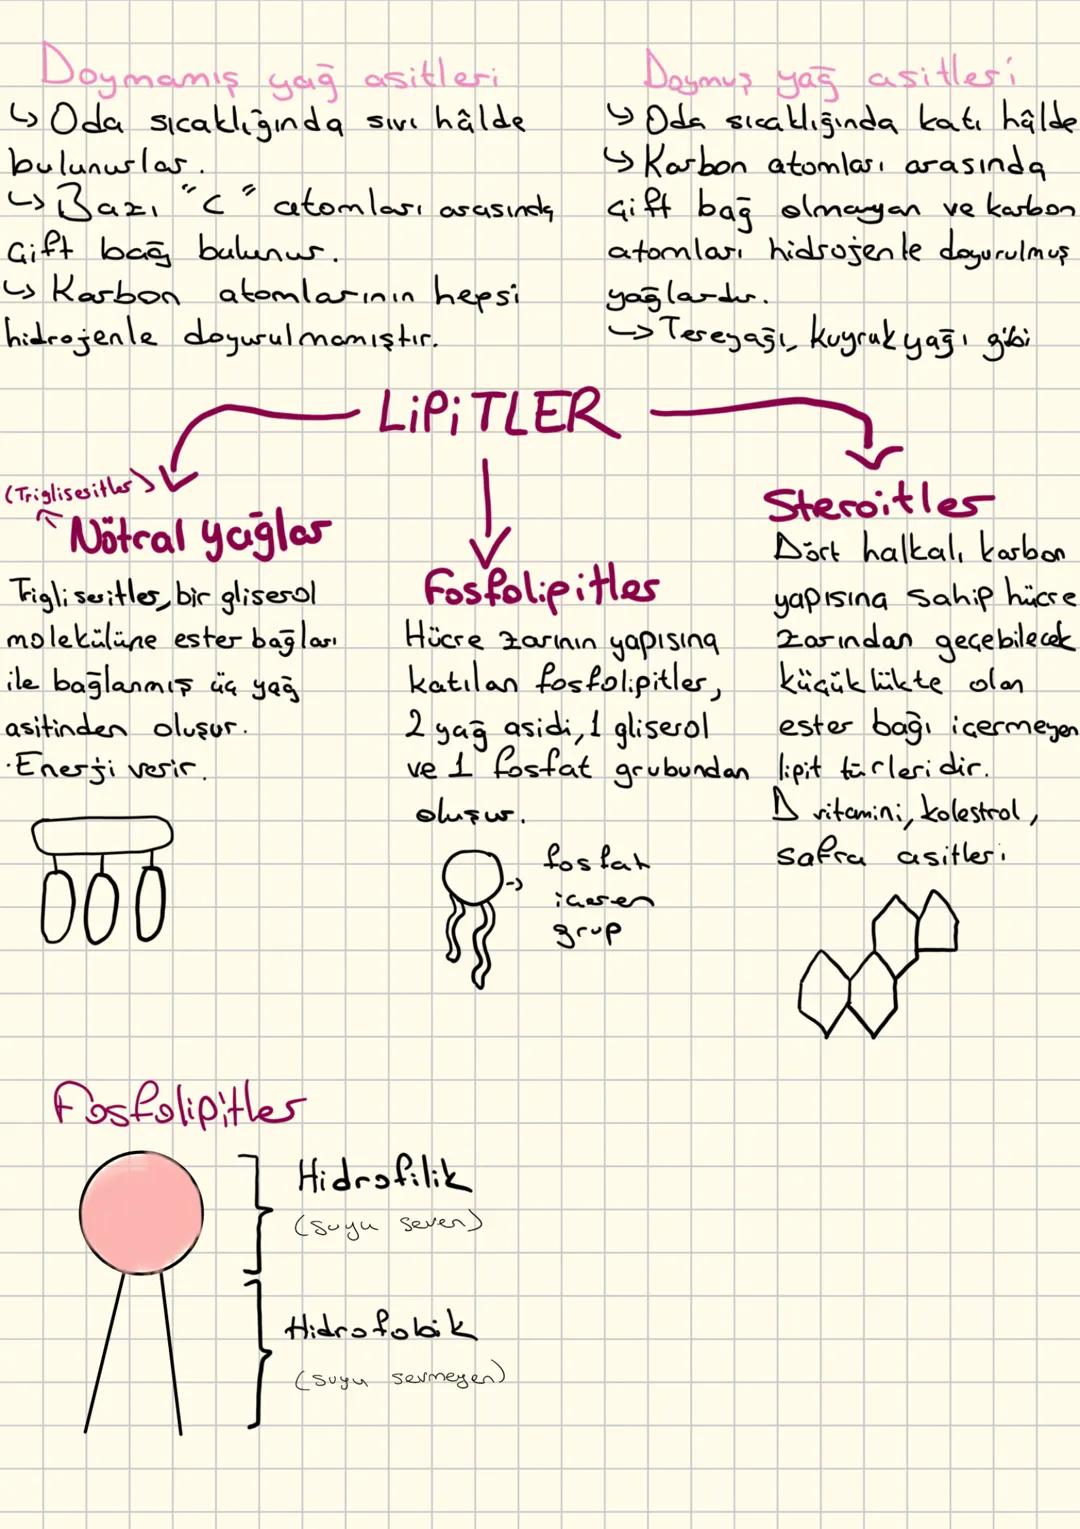 Doymamış yağ asitleri
↳ Oda sıcaklığında sıvı hâlde
bulunurlar.
↳ Bazı "C" atomları arasında
çift bağ bulunur.
↳ Karbon atomlarının hepsi
hidrojenle doyurulmamıştır.
Doymuş yağ asitleri
↳ Oda sıcaklığında katı hâlde
↳ Karbon atomları arasında
çift bağ olmayan ve karbon
atomları hidrojenle doyurulmuş
yağlardır.
↳ Tereyağı, kuyruk yağı gibi
LİPİTLER
(Trigliseritler)
Nötral yağlar
Trigliseritler, bir gliserol
molekülüne ester bağları
ile bağlanmış üç yağ
asitinden oluşur.
·Enerji verir.
Fosfolipitler
Hücre zarının yapısına
katılan fosfolipitler,
2 yağ asidi, 1 gliserol
ve 1 fosfat grubundan
oluşur.
fosfat
içeren
grup
Steroitler
Dört halkalı karbon
yapısına sahip hücre
zarından geçebilecek
küçüklükte olan
ester bağı içermeyen
lipit türleridir.
D vitamini, kolestrol,
safra asitleri
Fosfolipitler
Hidrofilik
(suyu seven)
Hidrofobik
(suyu sevmeyen)